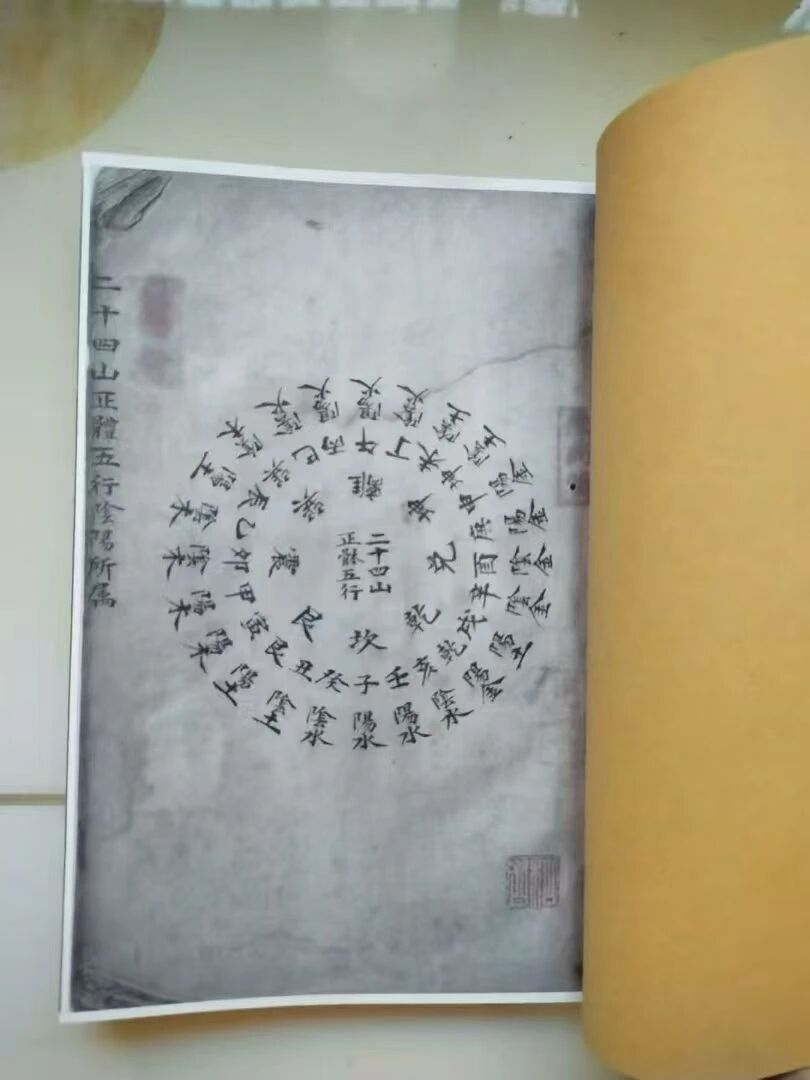 二十四山正體五行陰陽所属
二十四山
正骵五行
離
坤
兌
乾
坎
艮
震
巽
午 丁 未 坤 申 庚 酉 辛 戌 乾 亥 壬 子 癸 丑 艮 寅 甲 卯 乙 辰 巽 巳 丙
陽火 陰火 陰土 陰土 陽金 陽金 陰金 陰金 陽土 陽金 陰水 陽水 陽水 陰水 陰土 陽土 陽木 陽木 陰木 陰木 陽土 陰木 陰火 陽火